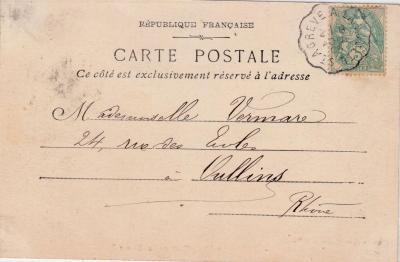 RÉPUBLIQUE FRANÇAISE
CARTE POSTALE
Ce côté est exclusivement réservé à l'adresse
ST AGRÈVE A L
Mademoiselle Vermare
24, rue des Ecoles
à Oullins
Rhône